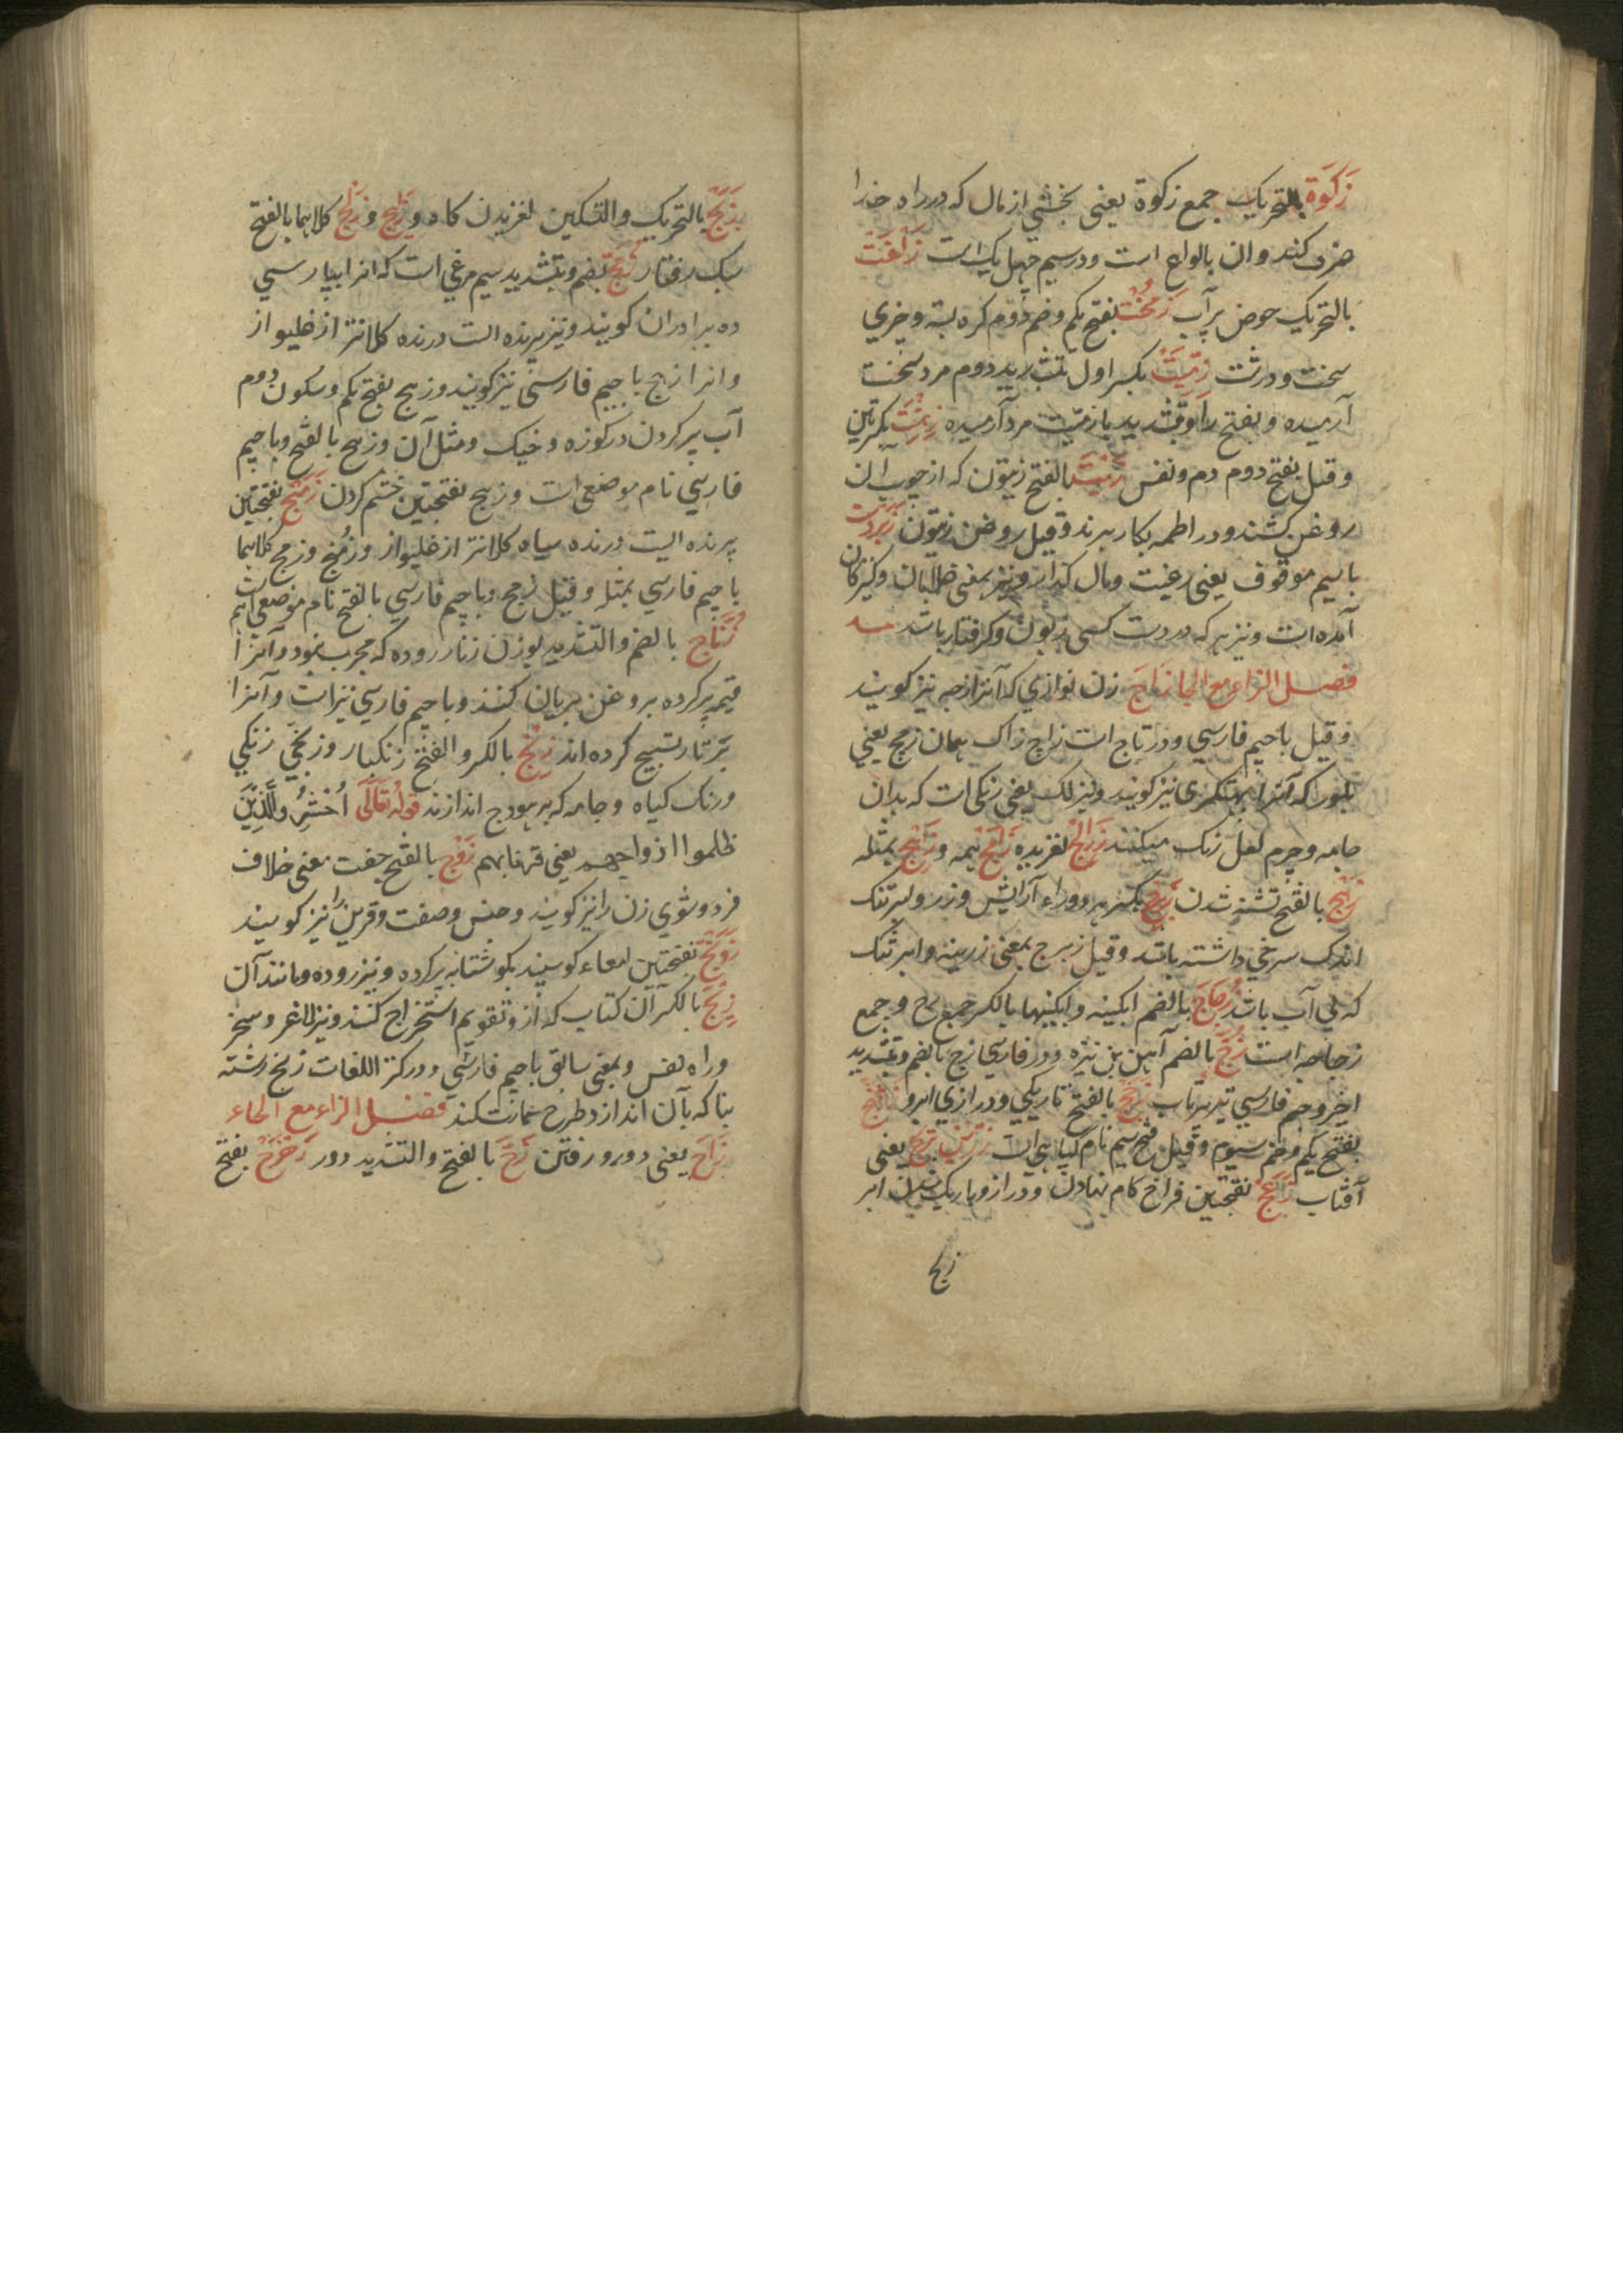 زَکَوة بالتحریک جمع زکوة یعنی بخشی از مال که در راه خدا
صرف کنند وان بالواع است ودر سیم چهل یک است
بالتحریک حوض پر آب زَمُخْت بفتح یکم وضم دوم کره بسته وچیزی
سخت ودرشت زِمِّیْت بکسر اول بتشدید دوم مرد سخت
آرمیده وبفتح را وبتشدید یا زمیت مرد آرمیده بکسرتین
وقیل بفتح دوم دم ونفس زَیْت بالفتح زیتون که از چوب آن
روغن کشند ودر اطمه بکار برند وقیل روغن زیتون زبردست
باسیم موقوف یعنی رغبت ومال ونیز بمعنی ظالمان وکنیزکان
آمده است ونیز هر که در دست کسی زبون وکرفتار باشد
فصل الزاء مع الجا زَاجَ زن نوازی که آنرا زجه نیز کویند
وقیل باجیم فارسی ودر تاج است زاج زاک همان زمج یعنی
بلور که آنرا نیز کویند ونیز لک یعنی زنکی است که بدان
جامه وچرم لعل رنک میکنند زَالِج لغزیده نیمه و بمثله
بالفتح تشنه شدن زِبْرِج بکسر هر دو راء آرایش وزر وابر تنک
اندک سرخی داشته باشد وقیل زبرج بمعنی زرینه وابر تنک
که بی آب باشد زُجَاج بالضم ابکینه وابکینها بالکسر جمع زج وجمع
زجاجه است زُجّ بالضم آهن بن نیزه ودر فارسی زج بالضم وتشدید
اخیر وجیم فارسی تیر پرتاب زَجَج بالفتح تاریکی ودرازی ابرو
بفتح یکم وضم سیوم وقیل فتح سیم نام کیاهی است یعنی
آفتاب بفتحتین فراخ کام نهادن ودراز وباریک شدن ابر
زلج
زَلَج بالتحریک والتسکین لغزیدن کاه و زَالِج و زَلْج کلاهما بالفتح
سبک رفتار زُمَّج بضم وبتشدید سیم مرغی است که انرا بپارسی
ده برادران کویند ونیز پرنده الست درنده کلانتر از غلیواز
وانرا زمج باجیم فارسی نیز کویند وزمج بفتح یکم وسکون دوم
آب پر کردن در کوزه وخیک ومثل آن وزمج بالفتح وباجیم
فارسی نام موضعی است وزمج بفتحتین خشم کردن زَمَنْج بفتحتین
پرنده الیست درنده سیاه کلانتر از غلیواز وزمنج وزمج کلاهما
باجیم فارسی بمثله وقیل زمج وباجیم فارسی بالفتح نام موضعی است
زُنَّاج بالضم والتشدید بوزن زنار روده که مجرب بود وآنرا
قیمه پر کرده بروغن بریان کنند وباجیم فارسی نیز است وآنرا
بر تار تسبیح کرده اند زِنْج بالکسر والفتح زنکبار وزنجی زنکی
ورنک کیاه وجامه که بر هودج اندازند قوله تعالی اُحْشُرُوا الَّذِیْنَ
ظلموا ازواجهم یعنی قرناءهم زَوْج بالفتح جفت معنی خلاف
فرد وشوی زن را نیز کویند وجنس وصفت وقرین را نیز کویند
زَوَنْج بفتحتین امعاء کوسپند بکوشتابه پر کرده ونیز روده ومانند آن
زِیْج بالکسر آن کتاب که ازو تقویم استخراج کنند ونیز لاغر وسخر
وراه نفس وبمعنی سابق باجیم فارسی ودر کنز اللغات زیخ رشته
بنا که بآن انداز وطرح عمارت کنند فصل الزاء مع الحاء
زَاحَ یعنی دور ورفتن زَحَّ بالفتح والتشدید دور زَحْزَحَ بفتح